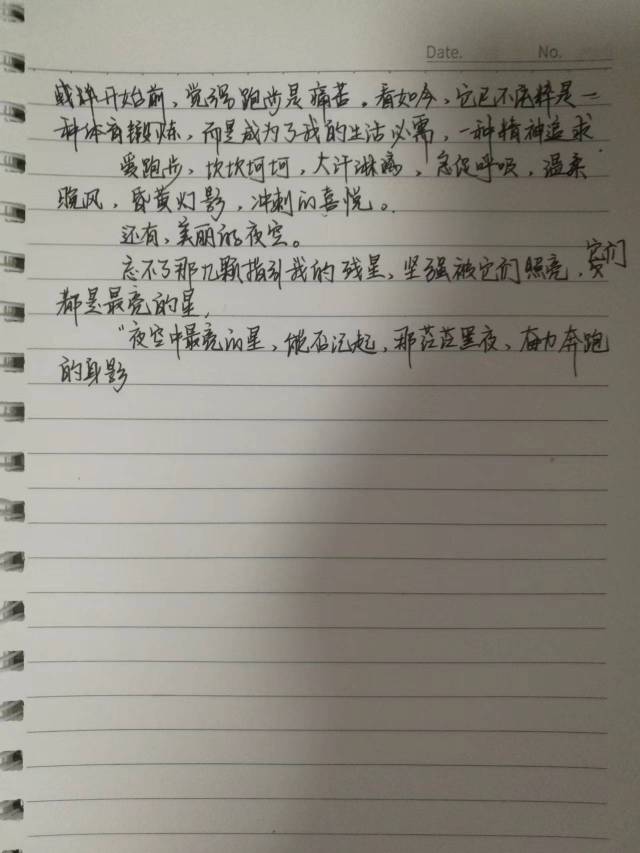 Date. No.
开始前，觉得跑步是痛苦，看如今，它已不纯粹是一
种体育锻炼，而是成为了我的生活必需，一种精神追求
爱跑步，坎坎坷坷，大汗淋漓，急促呼吸，温柔
晚风，昏黄灯影，冲刺的喜悦。
还有，美丽的夜空。
忘不了那几颗指引我的残星，坚强被它们照亮，它们
都是最亮的星，
“夜空中最亮的星，能否记起，那茫茫黑夜，奋力奔跑
的身影